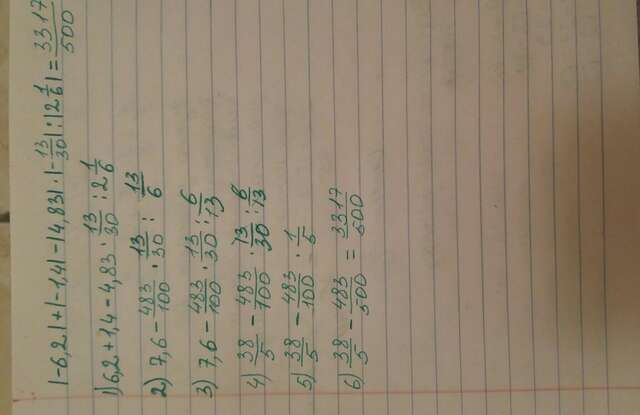 |-6,2|+|-1,4|-|4,83|·|-13/30|:|2 1/6|=3317/500
1) 6,2+1,4-4,83·13/30:2 1/6
2) 7,6-483/100·13/30:13/6
3) 7,6-483/100·13/30:6/13
4) 38/5-483/100·13/30:6/13
5) 38/5-483/100·1/5
6) 38/5-483/500=3317/500